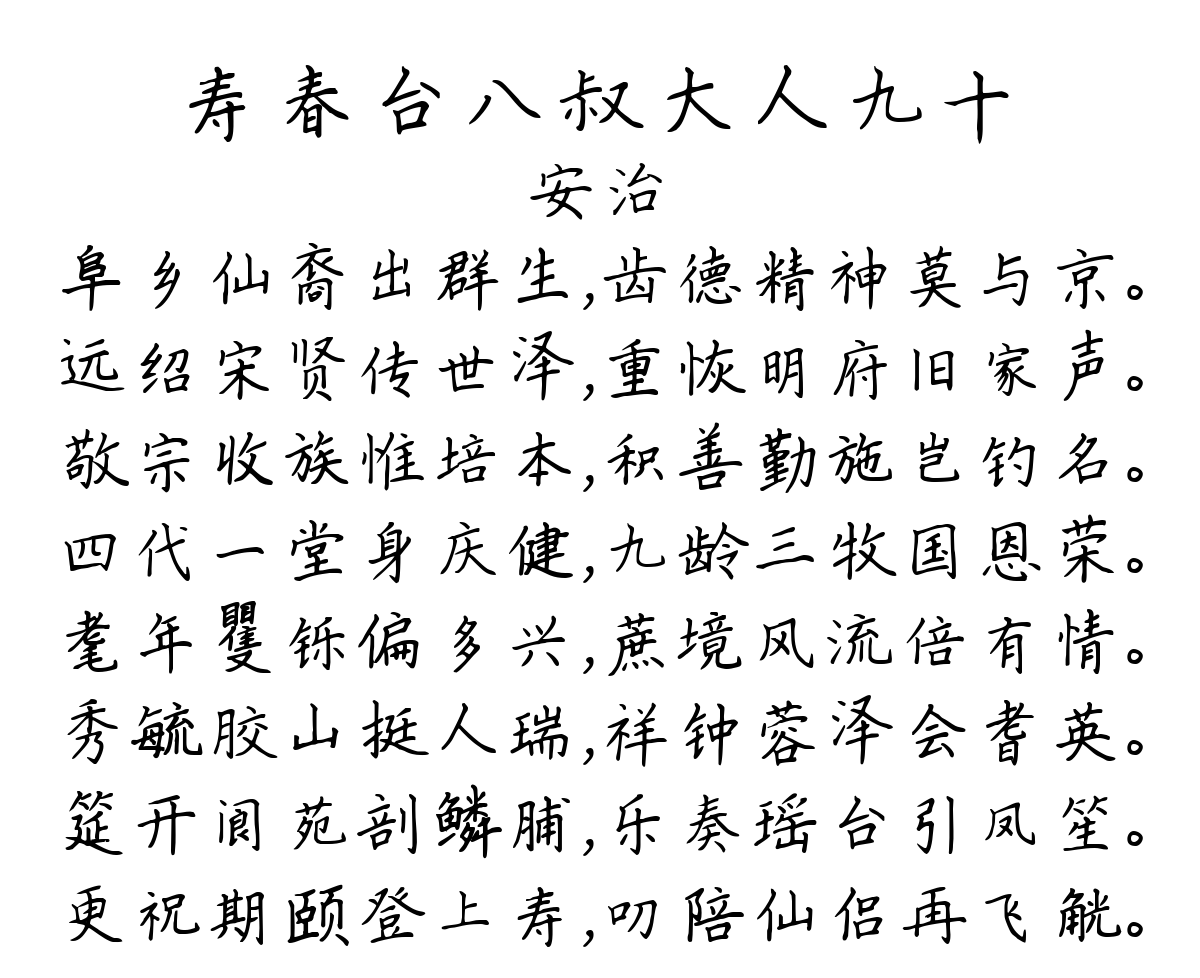 寿春台八叔大人九十
安治
阜乡仙裔出群生,齿德精神莫与京。
远绍宋贤传世泽,重恢明府旧家声。
敬宗收族惟培本,积善勤施岂钓名。
四代一堂身庆健,九龄三牧国恩荣。
耄年矍铄偏多兴,蔗境风流倍有情。
秀毓胶山挺人瑞,祥钟蓉泽会耆英。
筵开阆苑剖鳞脯,乐奏瑶台引凤笙。
更祝期颐登上寿,叨陪仙侣再飞觥。